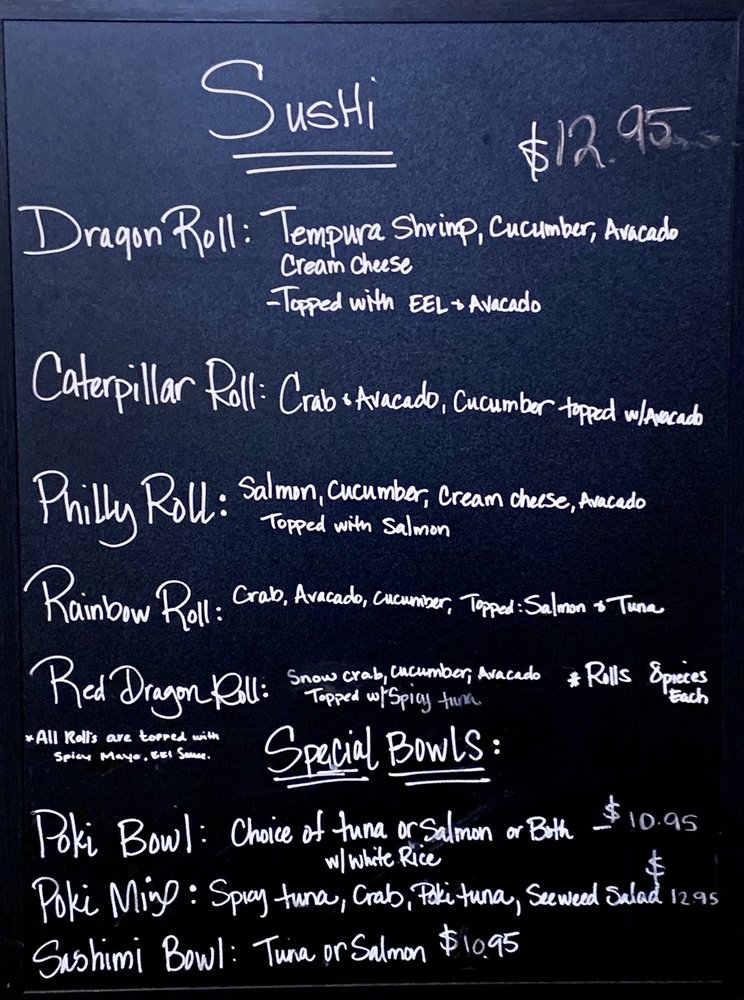 SusHi
$12.95
Dragon Roll: Tempura Shrimp, Cucumber, Avacado
Cream Cheese
-Topped with EEL + Avacado
Caterpillar Roll: Crab & Avacado, Cucumber topped w/Avacado
Philly Roll: Salmon, Cucumber, Cream cheese, Avacado
Topped with Salmon
Rainbow Roll: Crab, Avacado, Cucumber, Topped: Salmon & Tuna
Red Dragon Roll: Snow crab, cucumber, Avacado
Topped w/ Spicy tuna
* Rolls 8 pieces
Each
*All Roll's are topped with
Spicy Mayo, EEl Sauce.
Special Bowls:
Poki Bowl: Choice of tuna or Salmon or Both - $10.95
w/ White Rice
Poki Mix: Spicy tuna, Crab, Poki tuna, Seeweed Salad $12.95
Sashimi Bowl: Tuna or Salmon $10.95